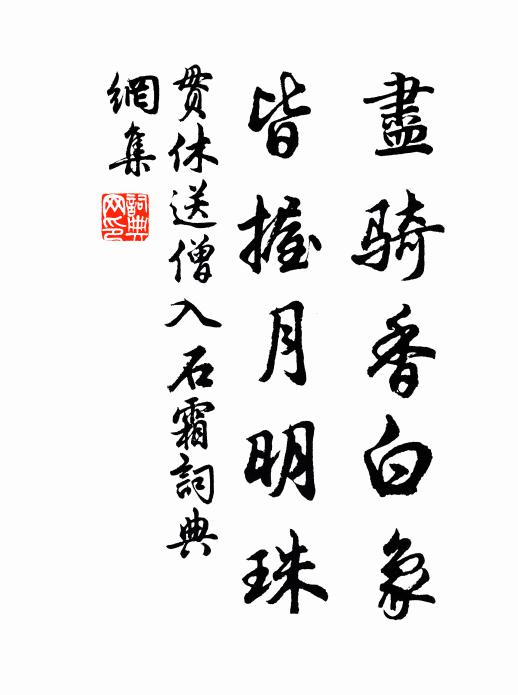 盡骑香白象
皆握月明珠
贯休送僧入石霜詞典
網集
詞典
网印